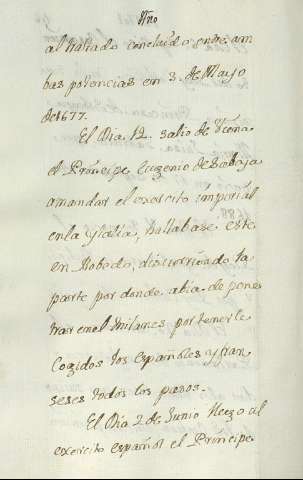 al tratado concluido entre am
bas potencias en 3. de Mayo
de 1677.
El Dia 12. salio de Viena
el Principe Eugenio de Saboja
amandar el exercito imperial
enla ytalia, hallabase este
en Robedo, discurriendo la
parte por donde abia de pene
trar enel Milanes por tenerle
Cogidos los Españoles y fran
seses todos los pasos.
El Dia 2 de Junio llego al
exercito español el Principe